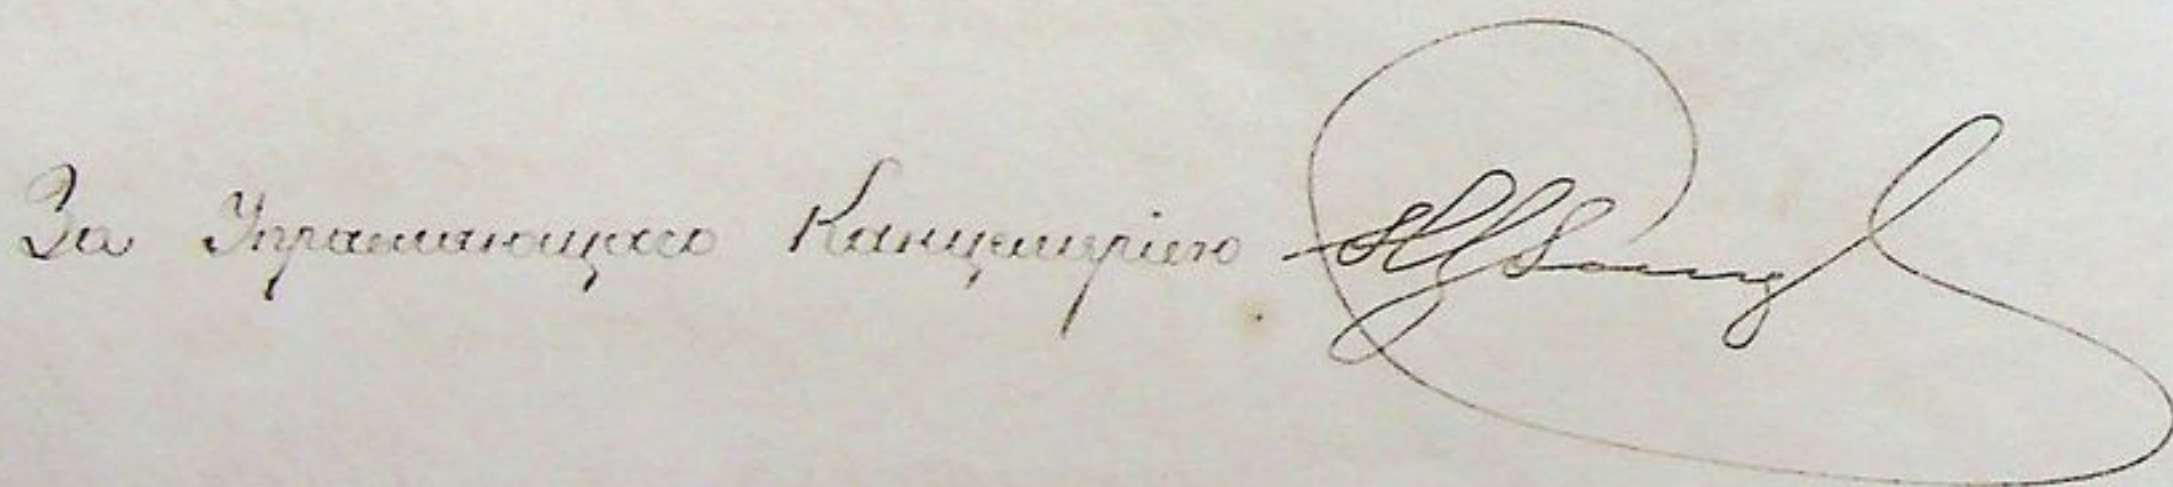 За Управляющаго Канцеляріею